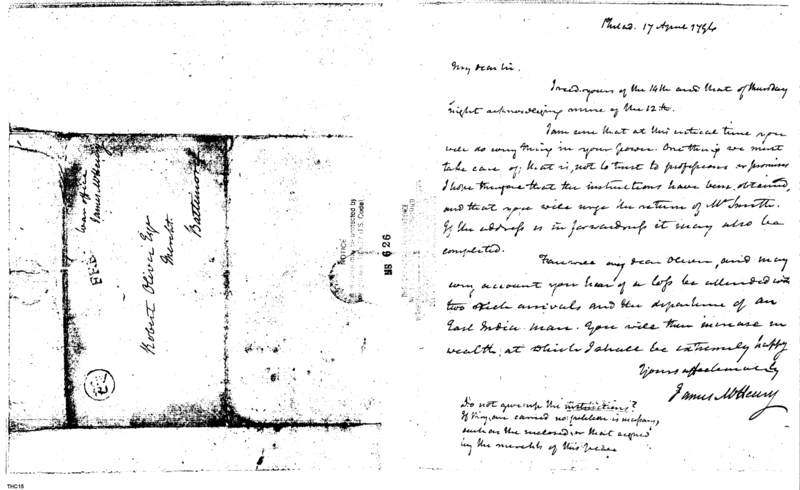 War office
James McHenry
FREE
Robert Oliver Esqr
Mercht.
Baltimore
NOTICE
protected by
U.S. Code)
MS 626
Philad. 17 April 1796
My dear Sir.
I recd. yours of the 14th and that of thursday
night acknowledging mine of the 12th.
I am sure that at this critical time you
will do every thing in your power. One thing we must
take care of; that is, not to trust to professions or promises
I hope therefore that the instructions have been obtained,
and that you will urge the return of Mr Smith.
If the address is in forwardness it may also be
completed.
Farewell my dear Oliver, and may
every account you hear of a loss be attended with
two such arrivals and the departure of an
East India man. You will then increase in
wealth, at which I shall be extremely happy
Yours affectionately
James McHenry
Do not give up the instructions.
If they are carried no petition is necessary,
such as the enclosed or that signed
by the merchts of this place
THC15